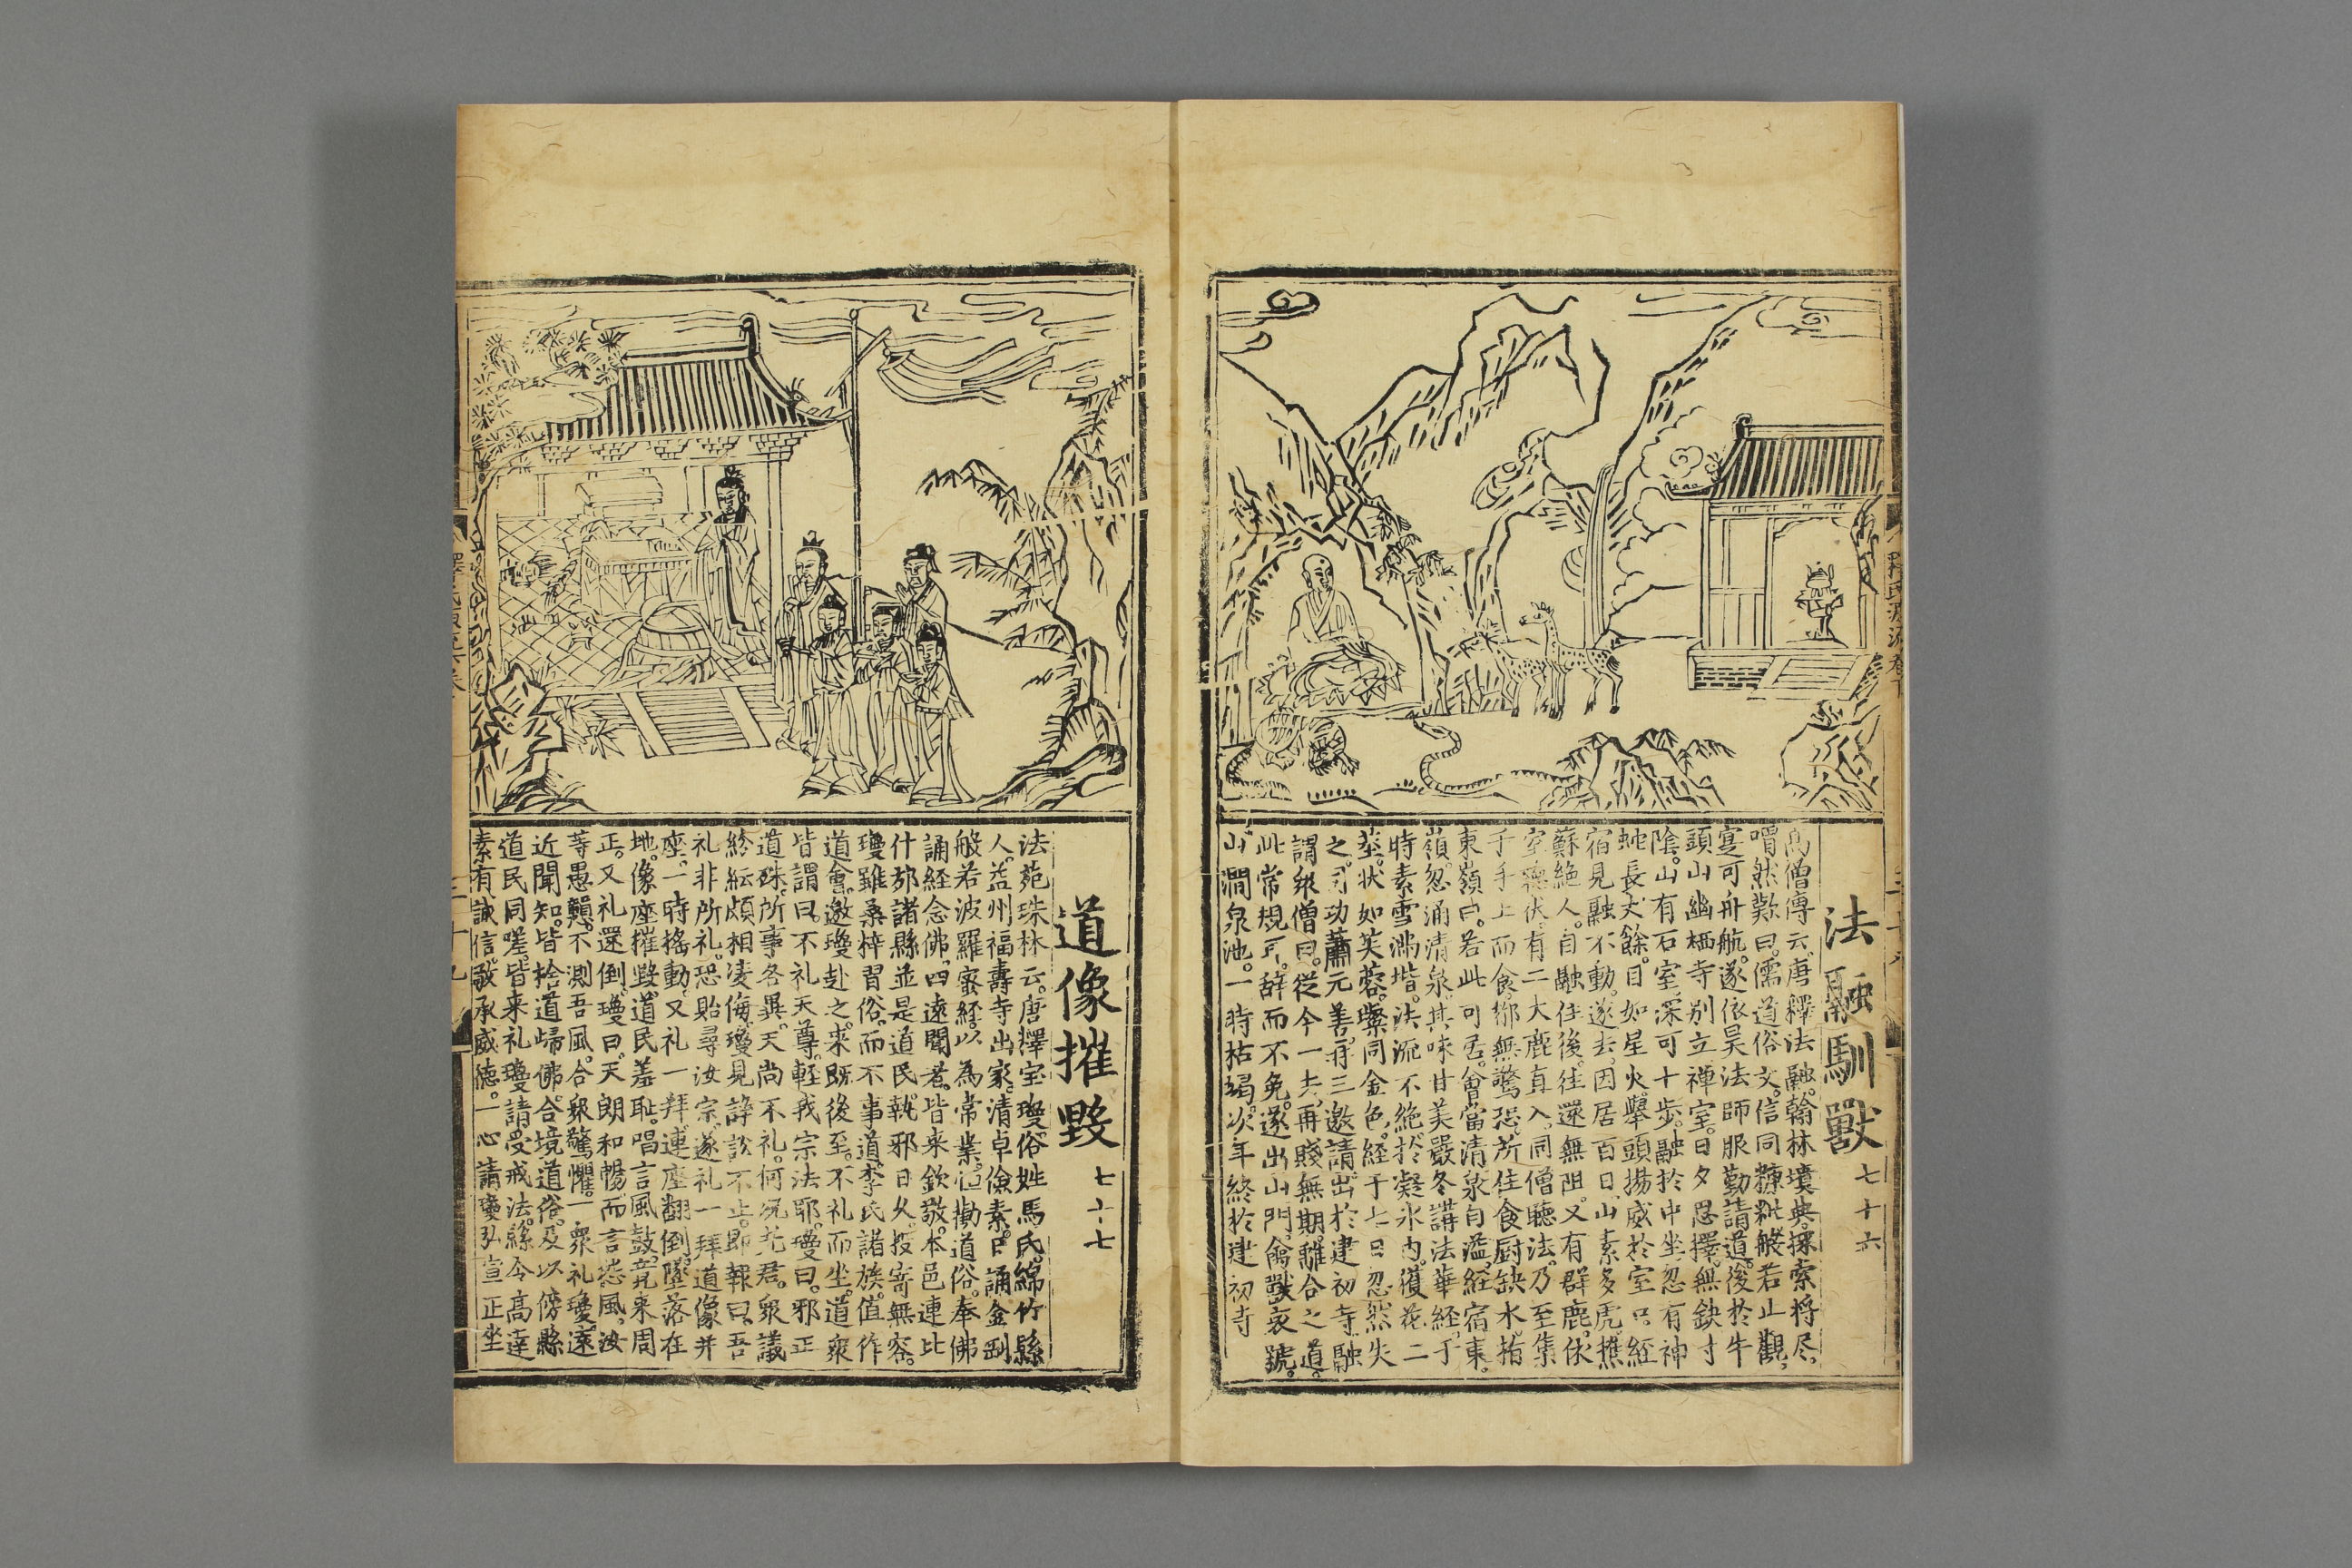 法融馴獸 七十六
高僧傳云。唐釋法融。翰林墳典。探索將尽。
喟然歎曰。儒道俗文。信同糠粃。般若止觀。
寔可舟航。遂依吴法師服勤請道。後於牛
頭山幽栖寺别立禅室。日夕思擇。無鈌寸
陰。山有石室。深可十步。融於中坐。忽有神
蛇長丈餘。目如星火。舉頭揚威。於室口經
宿。見融不動。遂去。因居百日。山素多虎。樵
蘇絶人。自融住後。往還無阻。又有群鹿。依
室聽伏。有二大鹿直入。同僧聽法。乃至集
于手上而食。都無驚恐。所住食厨缺水。指
東嶺曰。若此可居。會當清泉自溢。經宿東
嶺。忽涌清泉。其味甘美。嚴冬講法華経。于
時素雪满堦。法流不絶。於凝氷内。獲花二
莖。状如芙蓉。燦同金色。経于七日忽然失
之。司功蕭元善。再三邀請。出於建初寺。融
謂衆僧曰。從今一去。再踐無期。離合之道。
此常規可。辞而不免。遂出山門。禽獸哀號。
山澗泉池。一時枯竭。次年終於建初寺
釋氏源流卷下
道像摧毀 七十七
法苑珠林云。唐釋宝瓊。俗姓馬氏。綿竹縣
人。益州福壽寺出家。清卓儉素。日誦金剛
般若波羅蜜経。以為常業。但勸道俗。奉佛
誦経念佛。四遠聞者。皆来欽敬。本邑連比
什邡諸縣。並是道民。執邪日久。投寄無容。
瓊雖桑梓習俗。而不事道。李氏諸族。值作
道會。邀瓊赴之。来既後至。不礼而坐。道衆
皆謂曰。不礼天尊。輕我宗法耶。瓊曰。邪正
道殊。所事各異。天尚不礼。何况老君。衆議
紛紜。頗相凌侮。瓊見諍訟不止。即報曰。吾
礼非所礼。恐貽辱汝宗。遂礼一拜。道像并
座。一時摇動。又礼一拜。連座翻倒。墜落在
地。像座摧毀。道民羞耻。唱言風鼓。競来周
正。又礼還倒。瓊曰。天朗和暢。而言怨風。汝
等愚顛。不測吾風。合衆驚懼。一衆礼瓊。遠
近聞知。皆捨道歸佛。合境道俗。及以傍縣
道民。同嗟皆来礼瓊。請受戒法。縣令高逹
素有誠信。敬承威德。一心請瓊弘宣正坐
三十九